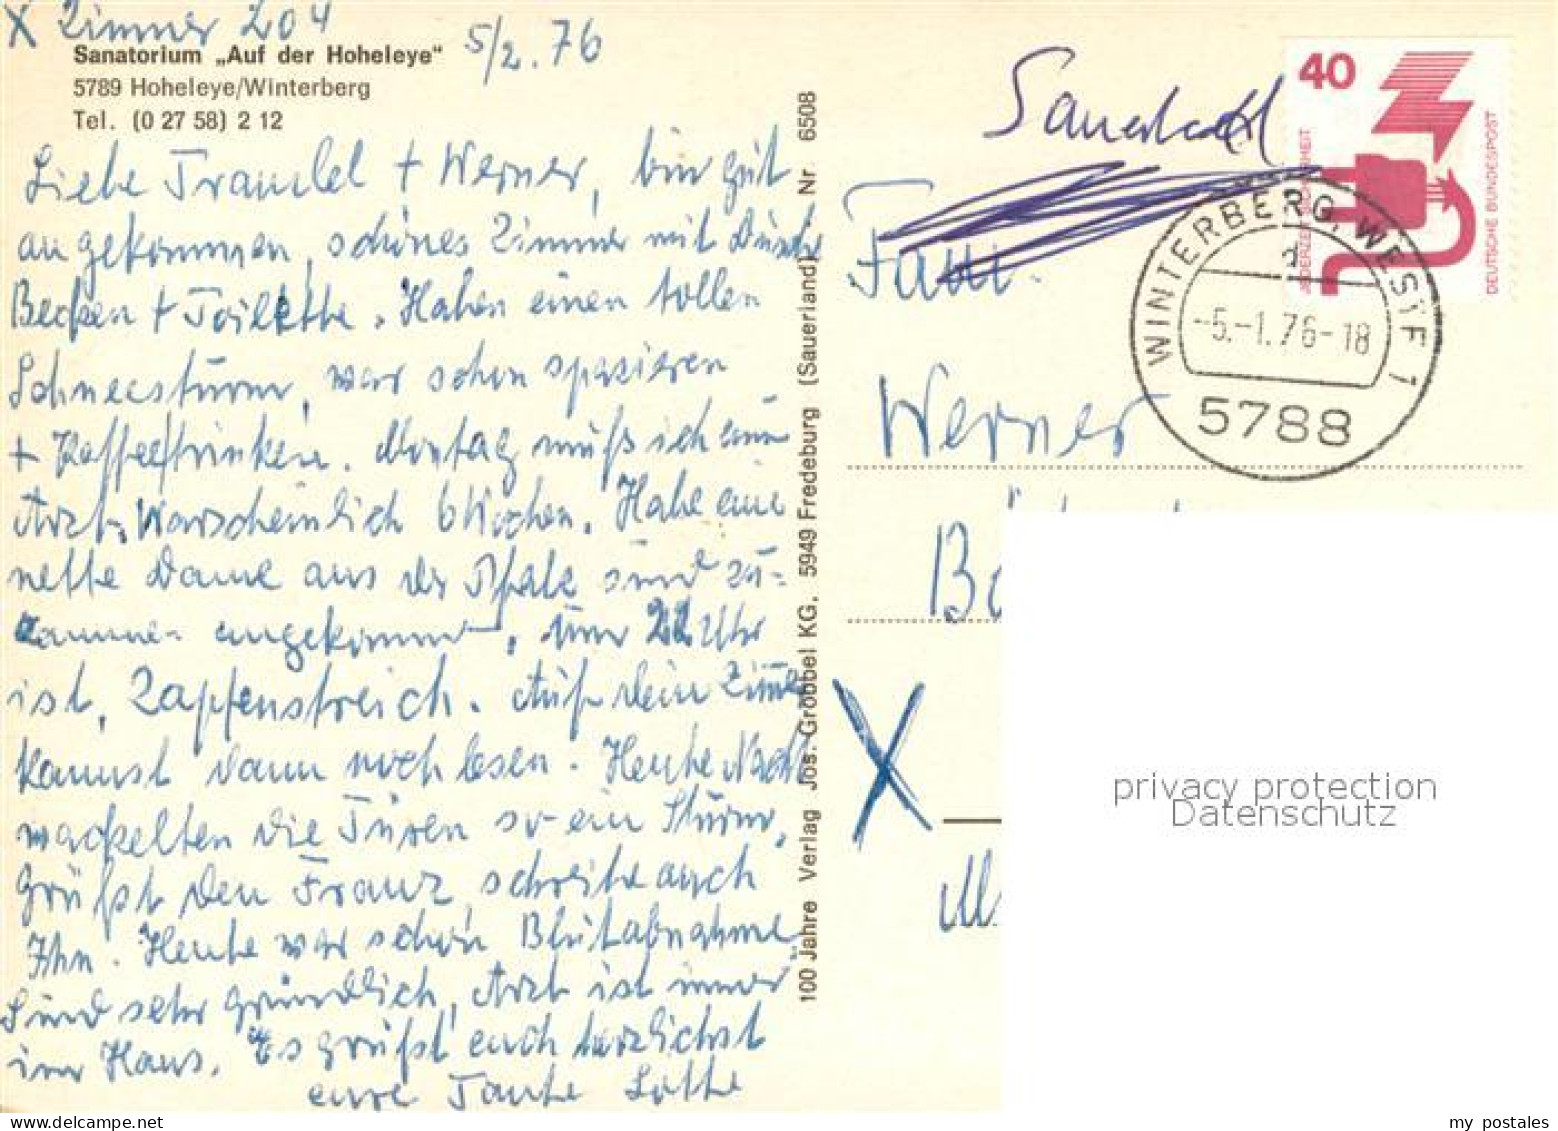 X Zimmer 204
5/2.76
Sanatorium „Auf der Hoheleye"
5789 Hoheleye/Winterberg
Tel. (0 27 58) 2 12
Liebe Traudel + Werner, bin gut
angekommen, schönes Zimmer mit Dusche
Becken + Toilette. Haben einen tollen
Schneesturm, war schon spazieren
+ Kaffeetrinken. Montag muß ich zum
Arzt. Warscheinlich 6 Wochen. Habe eine
nette Dame aus der Pfalz sind zu-
samme- angekommen. Um 22 Uhr
ist, Zapfenstreich. Auf dein Zimmer
kannst dann noch lesen. Heute Nacht
wackelten die Türen so ein Sturm,
grüßt den Franz, schreibe auch
Ihn. Heute war schon Blutabnahme
Sind sehr gründlich, Arzt ist immer
im Haus. Es grüßt euch herzlichst
eure Tante Lotte
100 Jahre Verlag Jos. Grobbel KG, 5949 Fredeburg (Sauerland) Nr. 6508
40
JEDERZEIT SICHERHEIT
DEUTSCHE BUNDESPOST
WINTERBERG, WESTF 1
d
-5.-1.76-18
5788
Fam.
Werner
X
privacy protection
Datenschutz
my postales